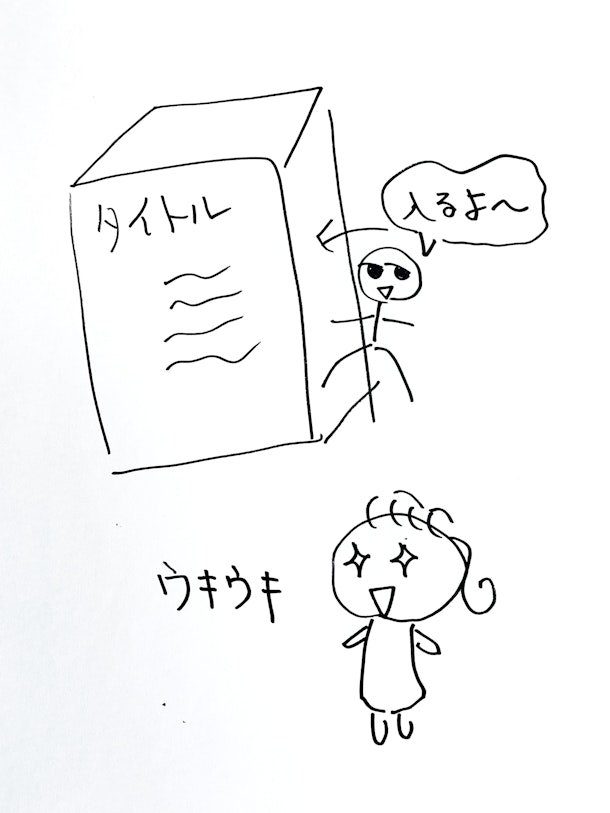 タイトル
入るよ〜
ウキウキ